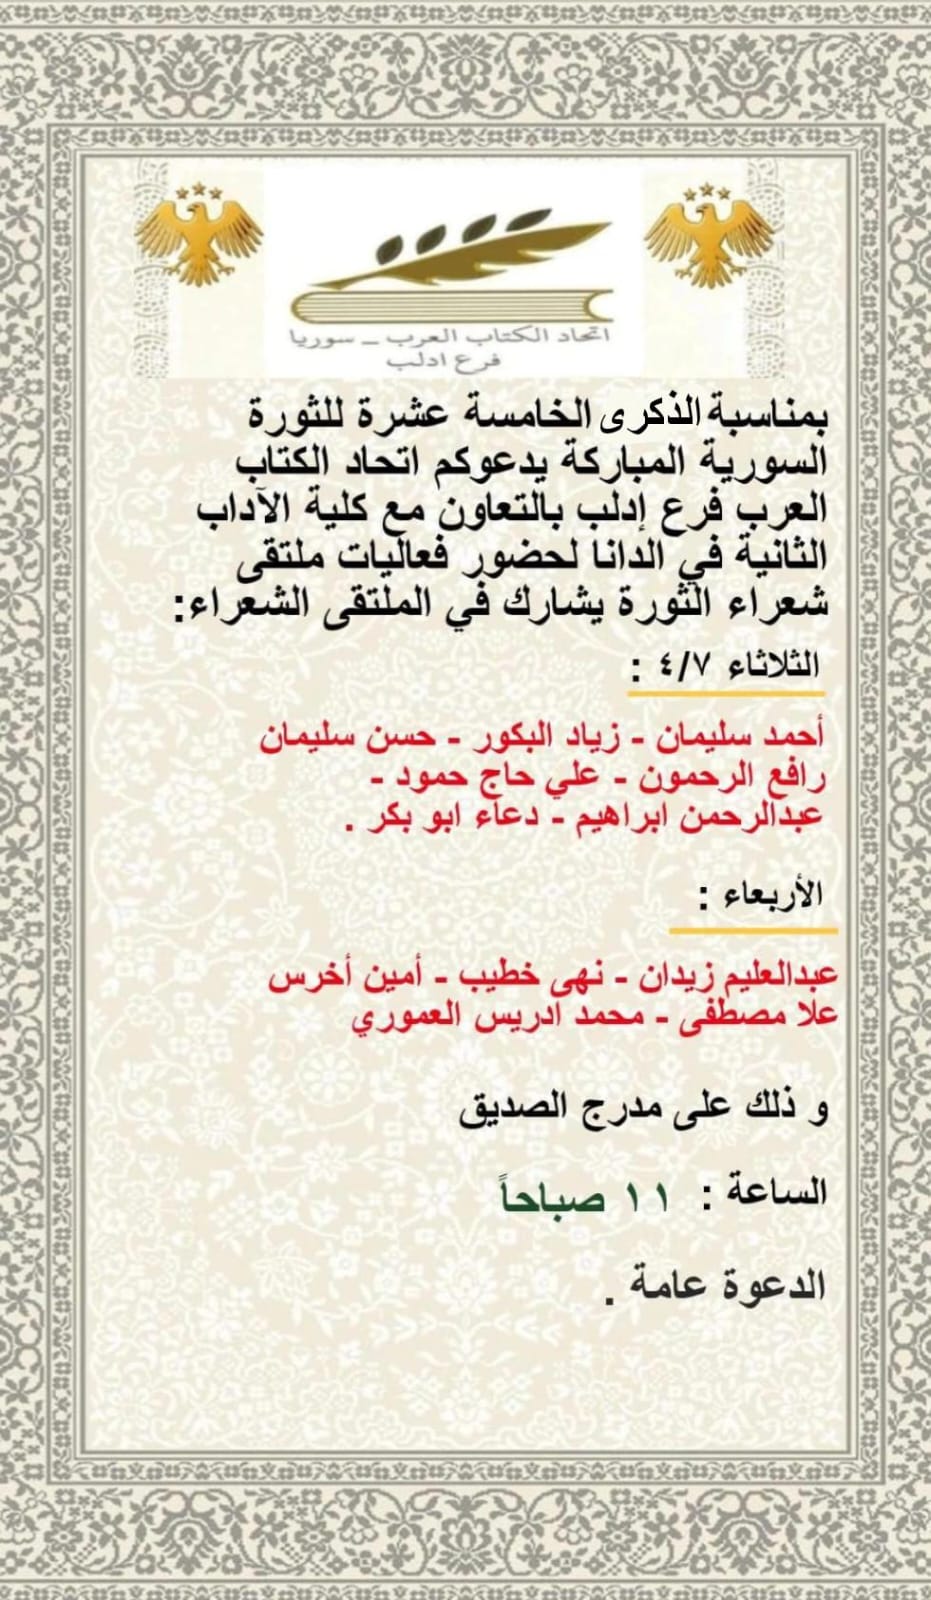 اتحاد الكتاب العرب – سوريا
فرع ادلب
بمناسبة الذكرى الخامسة عشرة للثورة
السورية المباركة يدعوكم اتحاد الكتاب
العرب فرع إدلب بالتعاون مع كلية الآداب
الثانية في الدانا لحضور فعاليات ملتقى
شعراء الثورة يشارك في الملتقى الشعراء:
الثلاثاء ٤/٧ :
أحمد سليمان - زياد البكور - حسن سليمان
رافع الرحمون - علي حاج حمود -
عبدالرحمن ابراهيم - دعاء ابو بكر .
الأربعاء :
عبدالعليم زيدان - نهى خطيب - أمين أخرس
علا مصطفى - محمد ادريس العموري
و ذلك على مدرج الصديق
الساعة : ١١ صباحاً
الدعوة عامة .